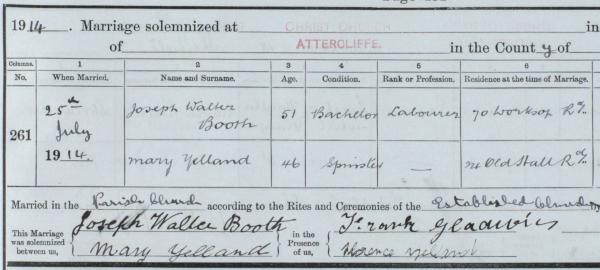 1914. Marriage solemnized at CHRIST CHURCH in
of ATTERCLIFFE. in the County of
Columns. 1 2 3 4 5 6
No. When Married. Name and Surname. Age. Condition. Rank or Profession. Residence at the time of Marriage.
261 25th July 1914. Joseph Walter Booth 51 Bachelor Labourer 70 Worksop Rd.
Mary Yelland 46 Spinster — Old Hall Rd.
Married in the Parish Church according to the Rites and Ceremonies of the Established Church by
This Marriage was solemnized between us, Joseph Walter Booth in the Presence of us, Frank Gladwin
Mary Yelland Florence Yelland